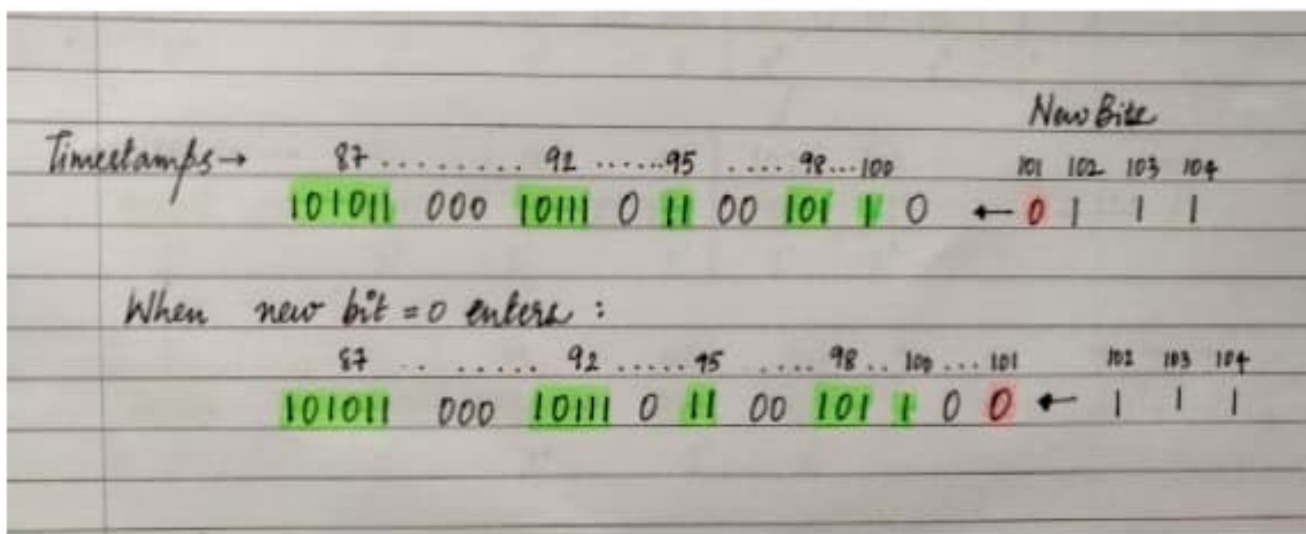 New Bits
Timestamps → 87 ......... 92 ......95 .... 98...100 101 102 103 104
101011 000 10111 0 11 00 101 1 0 ← 0 1 1 1
When new bit = 0 enters :
87 .. ..... 92 .....95 .... 98 .. 100 ... 101 102 103 104
101011 000 10111 0 11 00 101 1 0 0 ← 1 1 1